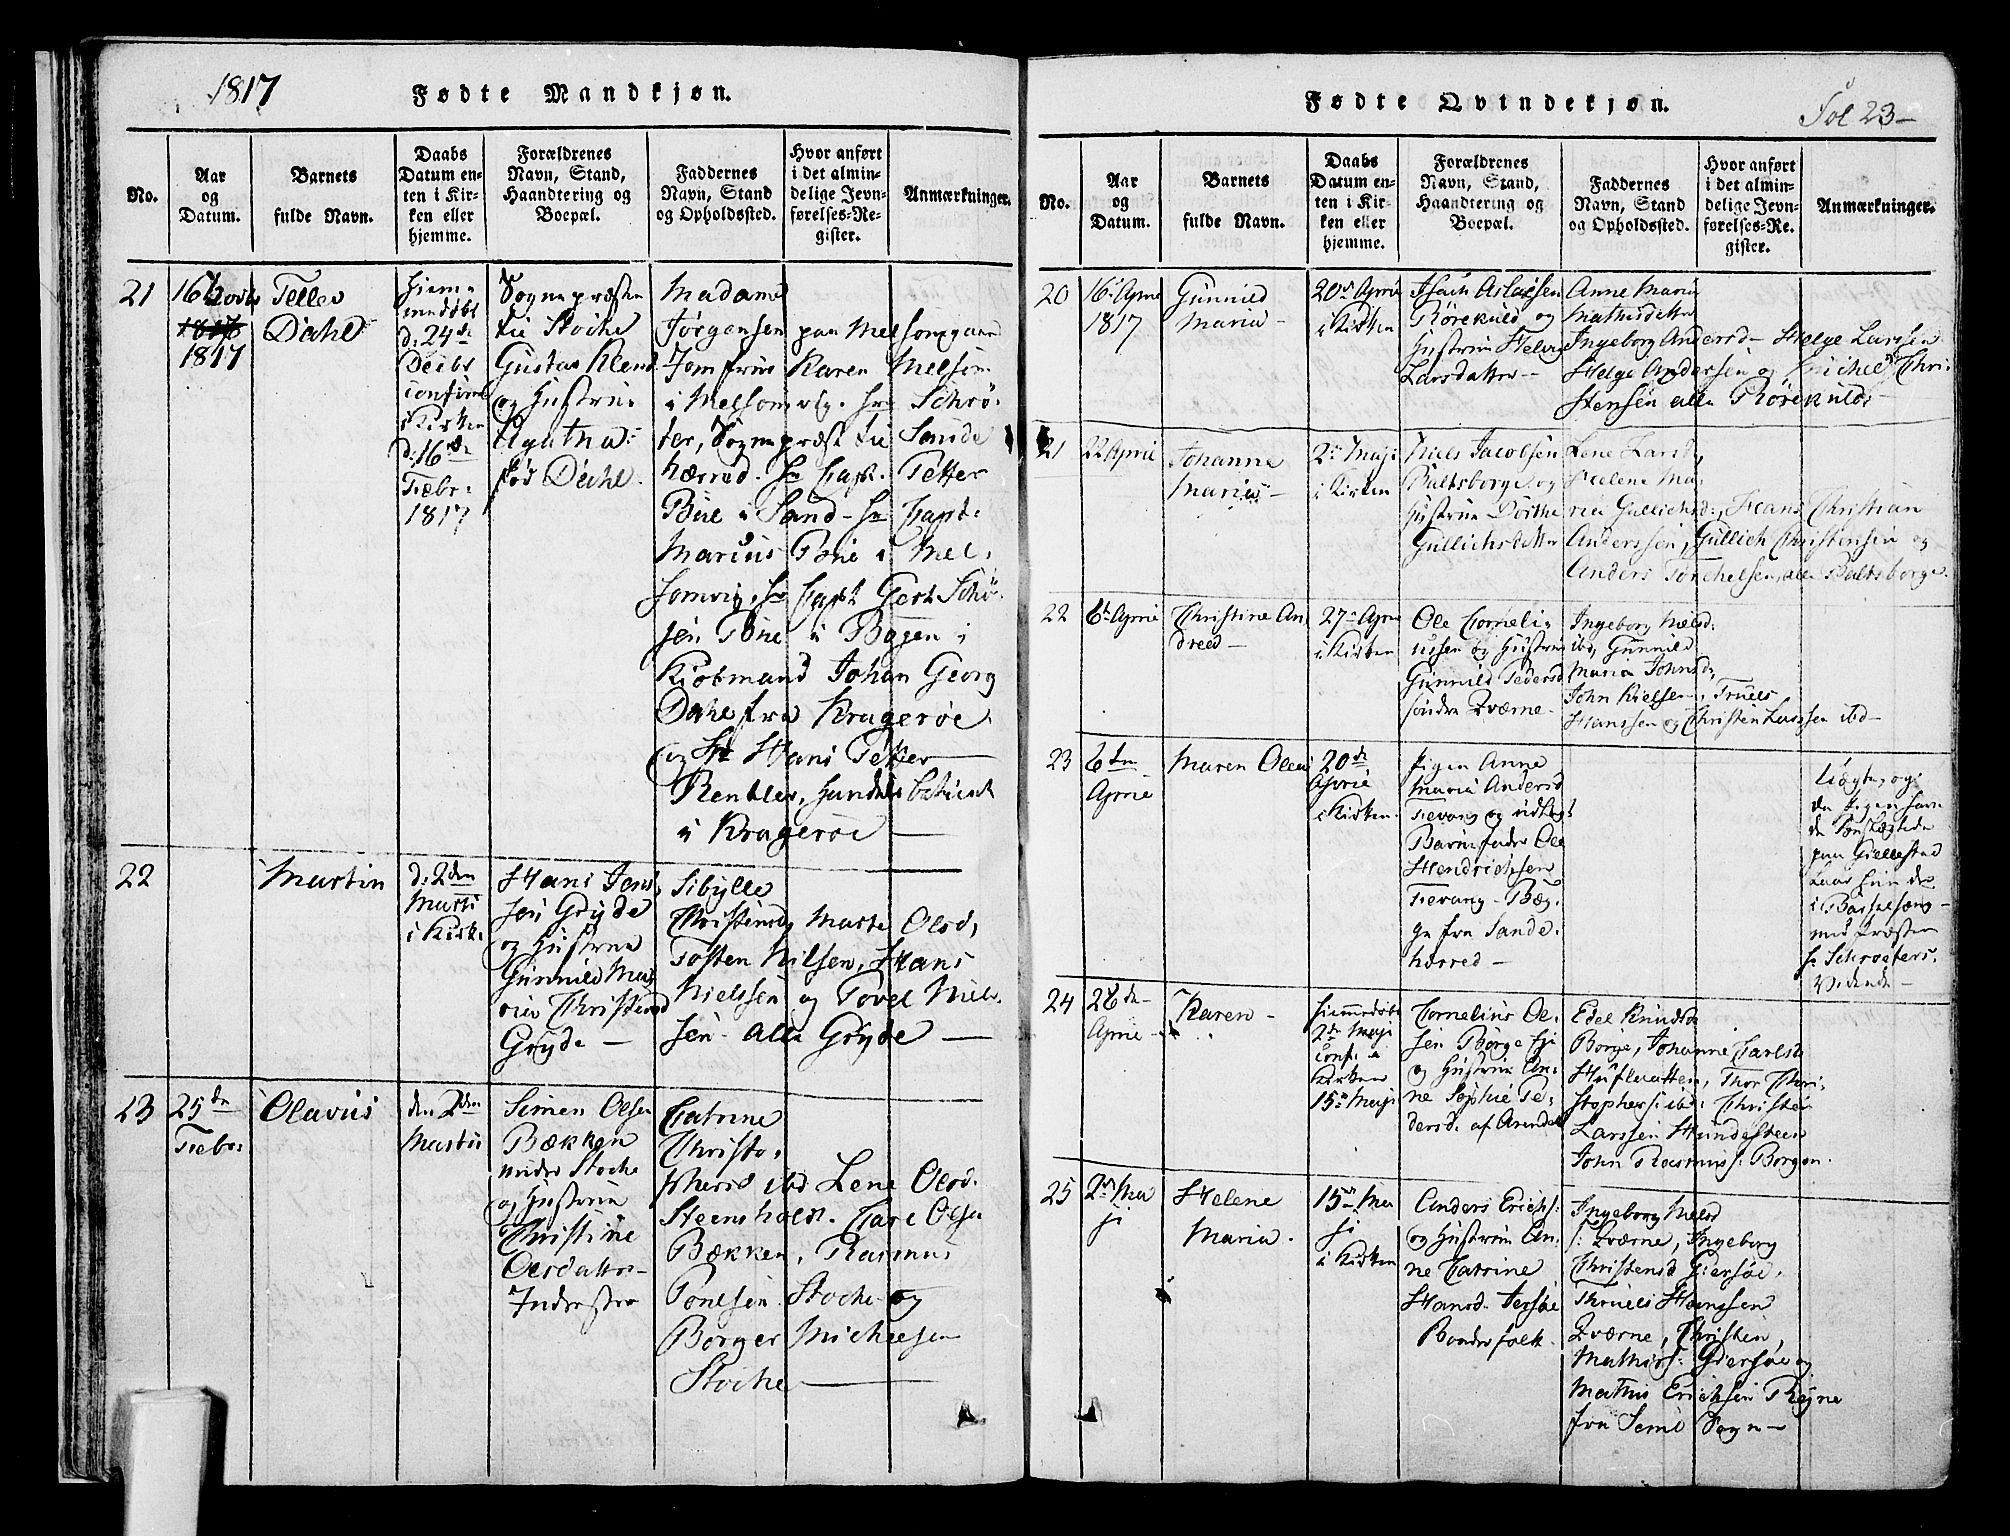 1817
Fødte Mandkjøn.
No.
Aar
og
Datum.
Barnets
fulde Navn.
Daabs
Datum en-
ten i Kir-
ken eller
hjemme.
Forældrenes
Navn, Stand,
Haandtering og
Boepæl.
Faddernes
Navn, Stand
og Opholdssted.
Hvor anført
i det almin-
delige Jevn-
førelses-Re-
gister.
Anmærkninger.
21
1817
Dahl
d: 24de
i Kirken
d: 16de
Febr:
1817
Sogne præsten
til Stocke
Gustav
og Hustrue
Dahl
Madame
Jørgensen paa Melsomgaard
Jomfrue Karen Melsom
i Melsomvig. Hr Schrø-
ter, Sognepræst til Sande
herred. Hr Capt. Petter
Bue i Sand - Hr Capt:
Marius Bue i Mel-
somvig, Hr Capt Gert Schø-
sen Bue i Bogen i
Kiøbmand Johan Georg
Dahl fra Kragerøe
og Hr Hans Petter
Rentler, Handels betient
i Kragerøe
22
Martin
d: 2den
Marti
i Kirk:
Hans Jens
sen Gryde
og Hustrue
Gunnild Ma
ria Christensd
Gryde
Sibylle
Christensd, Marte Olsd,
Tosten Nilsen, Hans
Nielssen og Povel Niels
sen. alle Gryde
23
25de
Febr
Olavus
den 2den
Martii
Simen Olsen
Bækken
under Stocke
og Hustrue
Christine
Olsdatter
Catrine
Christo-
phersd ibd Lene Olsd.
Steensholt. Carl Olsen
Bækken, Rasmus
Poulsen Stocke og
Borger Michelsen
Stocke
Fødte Qvindekjøn.
Fol 23
No.
Aar
og
Datum.
Barnets
fulde Navn.
Daabs
Datum en-
ten i Kir-
ken eller
hjemme.
Forældrenes
Navn, Stand,
Haandtering og
Boepæl.
Faddernes
Navn, Stand
og Opholdssted.
Hvor anført
i det almin-
delige Jevn-
førelses-Re-
gister.
Anmærkninger.
20
16 April
1817
Gunnild
Maria
20de April
i Kirken
Isach Aslacsen
Rørekuld og
Hustrue Helvig
Larsdatter
Anne Maria
Mathisdatter
Ingeborg Andersd - Helge Larssen
Helge Andersen og Michel Chri-
stensen alle Rørekuld
21
22 April
Johanne
Maria
2de Maji
i Kirken
Niels Jacobsen
Baltsborge og
Hustrue Dorthe
Gullichsdatter
Lene Larsd,
Helene Ma-
ria Gullichsd:, Hans Christian
Anderssen, Gullich Christensen og
Anders Torchelsen, alle Baltsborge.
22
6t April
Christine An
dred
27 April
i Kirken
Ole Corneli-
ussen og Hustrue
Gunnild Pedersd
søndre Qværne
Ingeborg Nielsd:
ibd, Gunnild
Maria Johnsd,
John Nielsen, Truels
Hanssen og Christen Larssen ibd
23
6ten
April
Maren Olea
20de
April
i Kirken
Pigen Anne
Maria Andersd
Fevang og udlagt
Barnefader Ole
Hendrichsen
Fevang - Beg-
ge fra Sande-
herred
Uægte, og
da Pigen havde
paa Giellestad
laae hun der
i Barselseng
med Præsten
Hr Schrøeters
Vidende
24
26de
April
Karen
Hiemmedøbt
2de Maji
Conf: i
Kirken
15 Maji
Cornelius Ol-
sen Borge
og Hustrue An-
ne Sophie Pe-
dersd: af Arendal
Edel Knudsd
Borge, Johanne Carlsd
Thor Chri-
stophers: ibd: Christen
Larssen Hundesteen
John Rasmus: Borgen.
25
2de Ma
ji
Helene
Maria
15de Ma
ji
i Kirken
Anders Erichs:
og Hustrue An-
ne Catrine
Hansd. Jersøe
Bonder folk
Ingeborg Nielsd
s: Qværne, Ingeborg
Christensd Giersøe,
Truels Hanssen
Qværne, Christen,
Mathis: Giersøe og
Mathis Erichsen
fra Semb Sogn